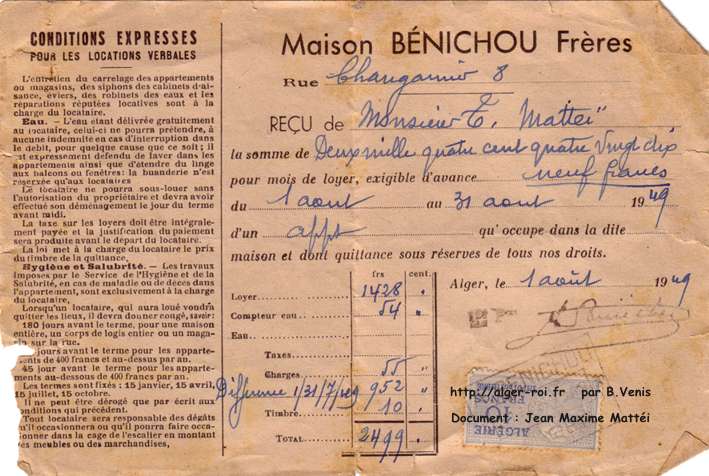 CONDITIONS EXPRESSES
POUR LES LOCATIONS VERBALES
L'entretien du carrelage des appartements
ou magasins, des siphons des cabinets d'ai-
sance, éviers, des robinets des eaux et les
réparations réputées locatives sont à la
charge du locataire.
Eau. — L'eau étant délivrée gratuitement
au locataire, celui-ci ne pourra prétendre, à
aucune indemnité en cas d'interruption dans
le débit, pour quelque cause que ce soit ; il
est expressement défendu de laver dans les
appartements ainsi que d'étendre du linge
aux balcons ou fenêtres: la buanderie n'est
réservée qu'aux locataires
Le locataire ne pourra sous-louer sans
l'autorisation du propriétaire et devra avoir
effectué son déménagement le jour du terme
avant midi.
La taxe sur les loyers doit être intégrale-
ment payée et la justification du paiement
sera produite avant le départ du locataire.
La loi met à la charge du locataire le prix
du timbre de la quittance.
Hygiène et Salubrité. — Les travaux
imposés par le Service de l'Hygiène et de la
Salubrité, en cas de maladie ou de décès dans
l'appartement, sont exclusivement à la charge
du locataire.
Lorsqu'un locataire, qui aura loué voudra
quitter les lieux, il devra donner congé, savoir:
180 jours avant le terme, pour une maison
entière, un corps de logis entier ou un maga-
sin sur la rue.
jours avant le terme pour les apparte-
ments de 400 francs et au-dessus par an.
45 jour avant le terme pour les apparte-
ments au-dessous de 400 francs par an.
Les termes sont fixés : 15 janvier, 15 avril,
15 juillet, 15 octobre.
Il ne peut être dérogé que par écrit aux
conditions qui précèdent.
Tout locataire sera responsable des dégâts
qu'il occasionnera ou qu'il pourra faire occa-
sionner dans la cage de l'escalier en montant
ses meubles ou des marchandises.
Maison BÉNICHOU Frères
Rue Changarnier 8
REÇU de Monsieur E. Matteï
la somme de Deux mille quatre cent quatre vingt dix
pour mois de loyer, exigible d'avance neuf francs
du 1 août au 31 août 1949
d'un appt qu'occupe dans la dite
maison et dont quittance sous réserves de tous nos droits.
Alger, le 1 août 1949
frs cent.
Loyer 1428 "
Compteur eau 54 "
Eau
Taxes
Charges 55 "
Différence 1/31/7/49 952 "
Timbre 10 "
Total 2499 "
BÉNICHOU
ALGÉRIE
10
FRANCS
http://alger-roi.fr par B.Venis
Document : Jean Maxime Mattéi